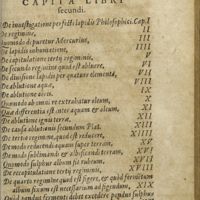 CAPITA LIBRI
secundi.
De inuestigatione perfecti lapidis Philosophici. Cap. I
De regimine, II
Quomodo depuretur Mercurius, III
De lapidis inhumatione, IIII
De capitulatione tertij regiminis, V
De secundo regimine quod est albificare, VI
De diuisione lapidis per quatuor elementa, VII
De ablutione aquæ, VIII
De ablutione aëris, IX
Quomodo ab omni re extrahatur aleum, X
Quæ differentia est inter aquam & oleum, XI
De ablutione ignis terræ, XII
De causa ablutionis secundum Plat. XIII
De tertio regimine, XIIII
De modo reducendi aquam super terram, XV
De modo sublimandi & albificandi terram, XVI
Quomodo sulphur album fix rubeum, XVII
De recapitulatione tertij regiminis, XVIII
De quarto regimine, quod est figere, & quòd fermentum
album fixum est necessarium ad figendum, XIX
Quid ponderis fermenti debet excedere pondus sulphur